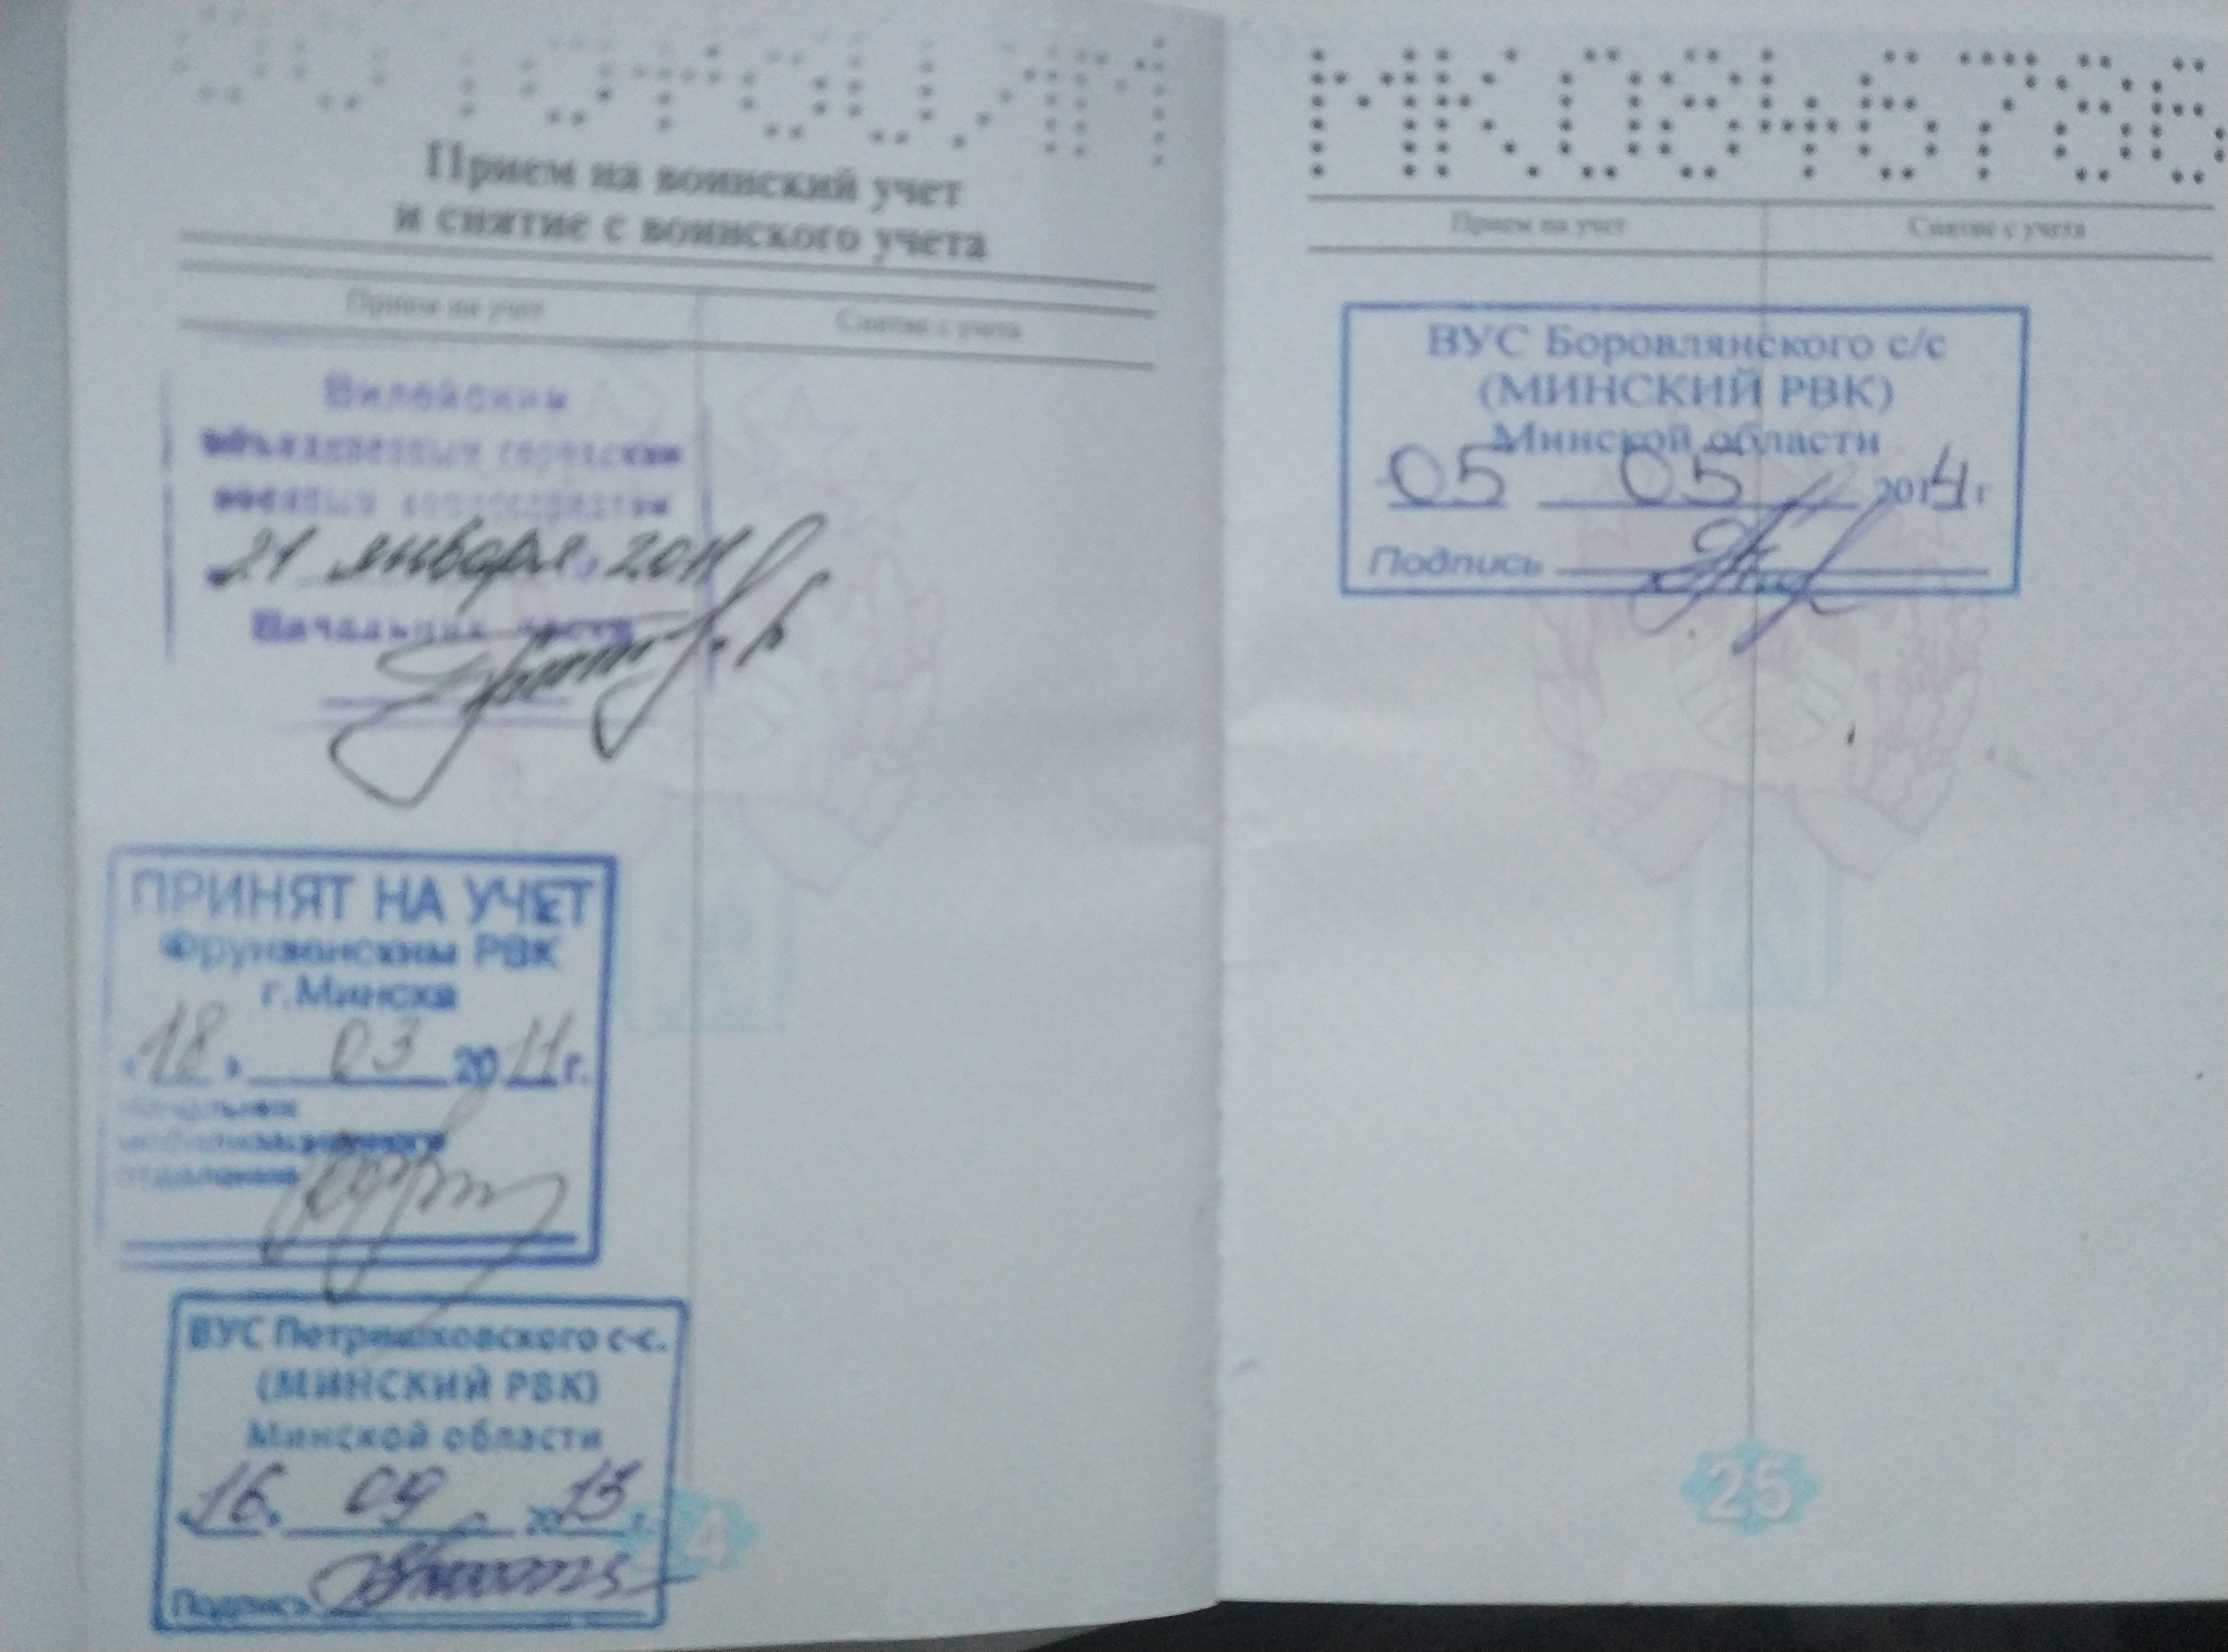 Прием на воинский учет
и снятие с воинского учета
Прием на учет
Снятие с учета
Вилейским
объединенным городским
военным комиссариатом
21 января 2011
Начальник части
ПРИНЯТ НА УЧЕТ
Фрунзенским РВК
г.Минска
«18» 03 2011г.
начальник
мобилизационного
отделения
ВУС Петришковского с-с.
(МИНСКИЙ РВК)
Минской области
16. 09. 2013 г.
Подпись
24
МК0846786
Прием на учет
Снятие с учета
ВУС Боровлянского с/с
(МИНСКИЙ РВК)
Минской области
05 05 2014 г
Подпись
25